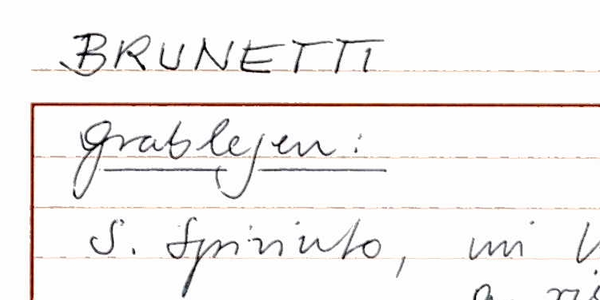 BRUNETTI
Grablegen:
S. Spirito, mi